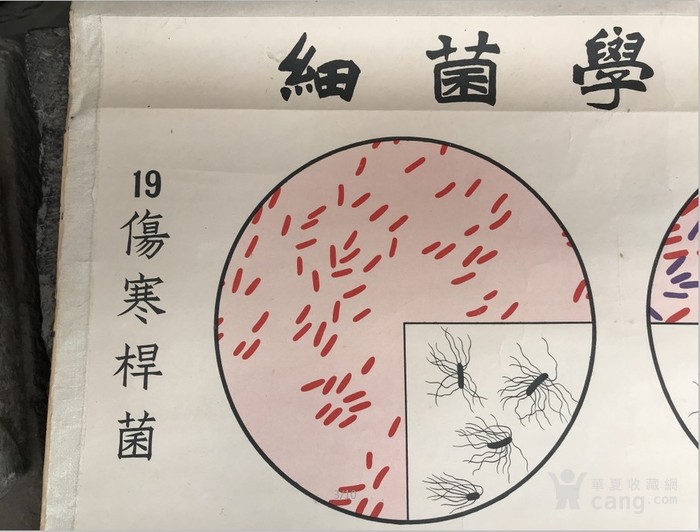 細菌學
19
傷寒桿菌
3/10
華夏收藏網
cang.com